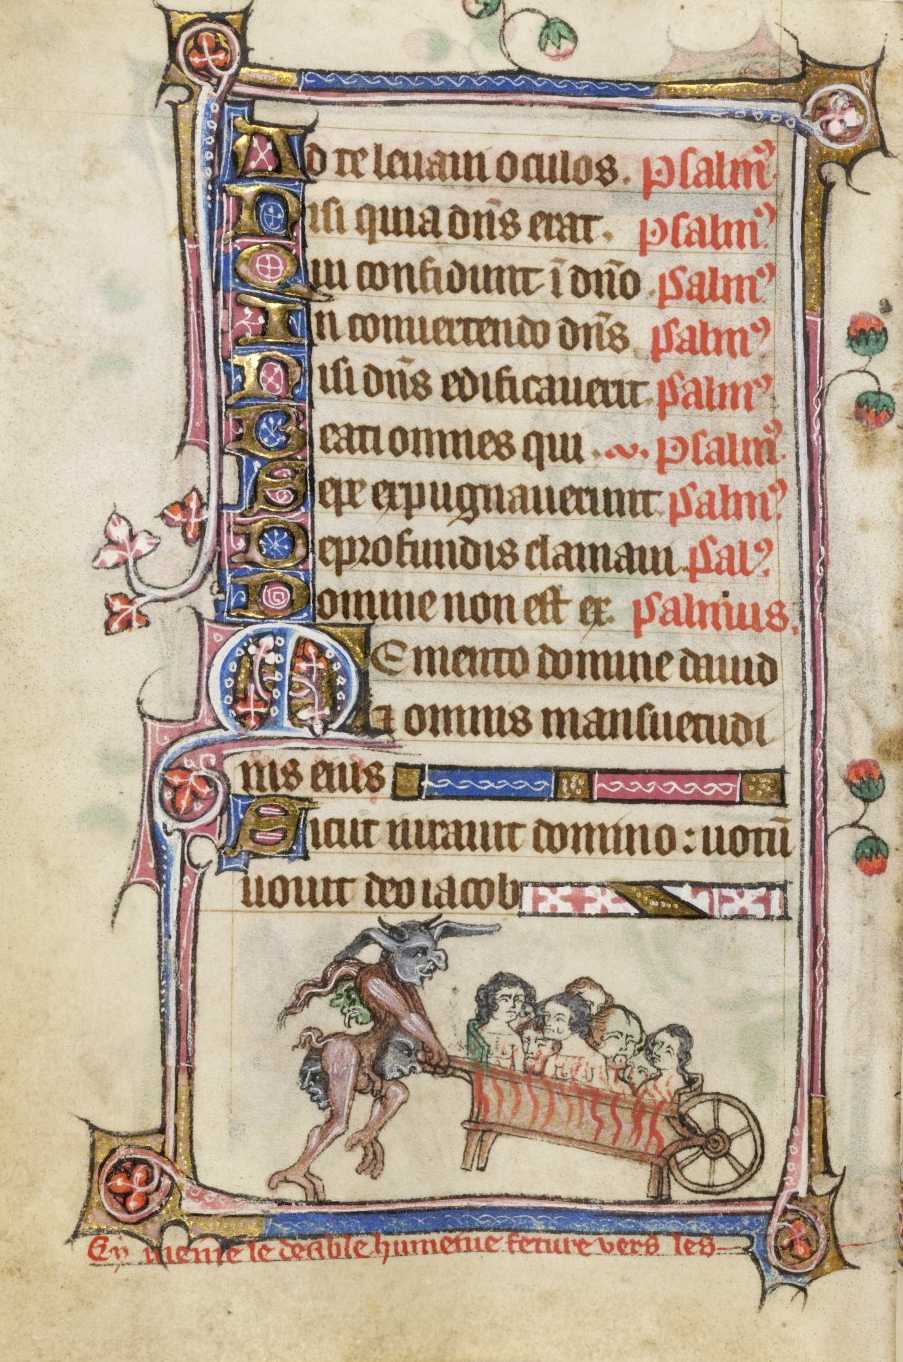 Ad te leuaui oculos. psalm᷒
Nisi quia dn̄s erat. psalm᷒
Qui confidunt ī dn̄o. psalm᷒
In conuertendo dn̄s psalm᷒
Nisi dn̄s edificauerit. psalm᷒
Beati omnes qui. psalm᷒
Sepe expugnauerunt. psalm᷒
De profundis clamaui. psal᷒
Domine non est ex. psalmus.
Memento domine dauid
et omnis mansuetudi
nis eius
Sicut iurauit domino: uotū
uouit deo iacob
Cy meine le deable humeine feture vers les